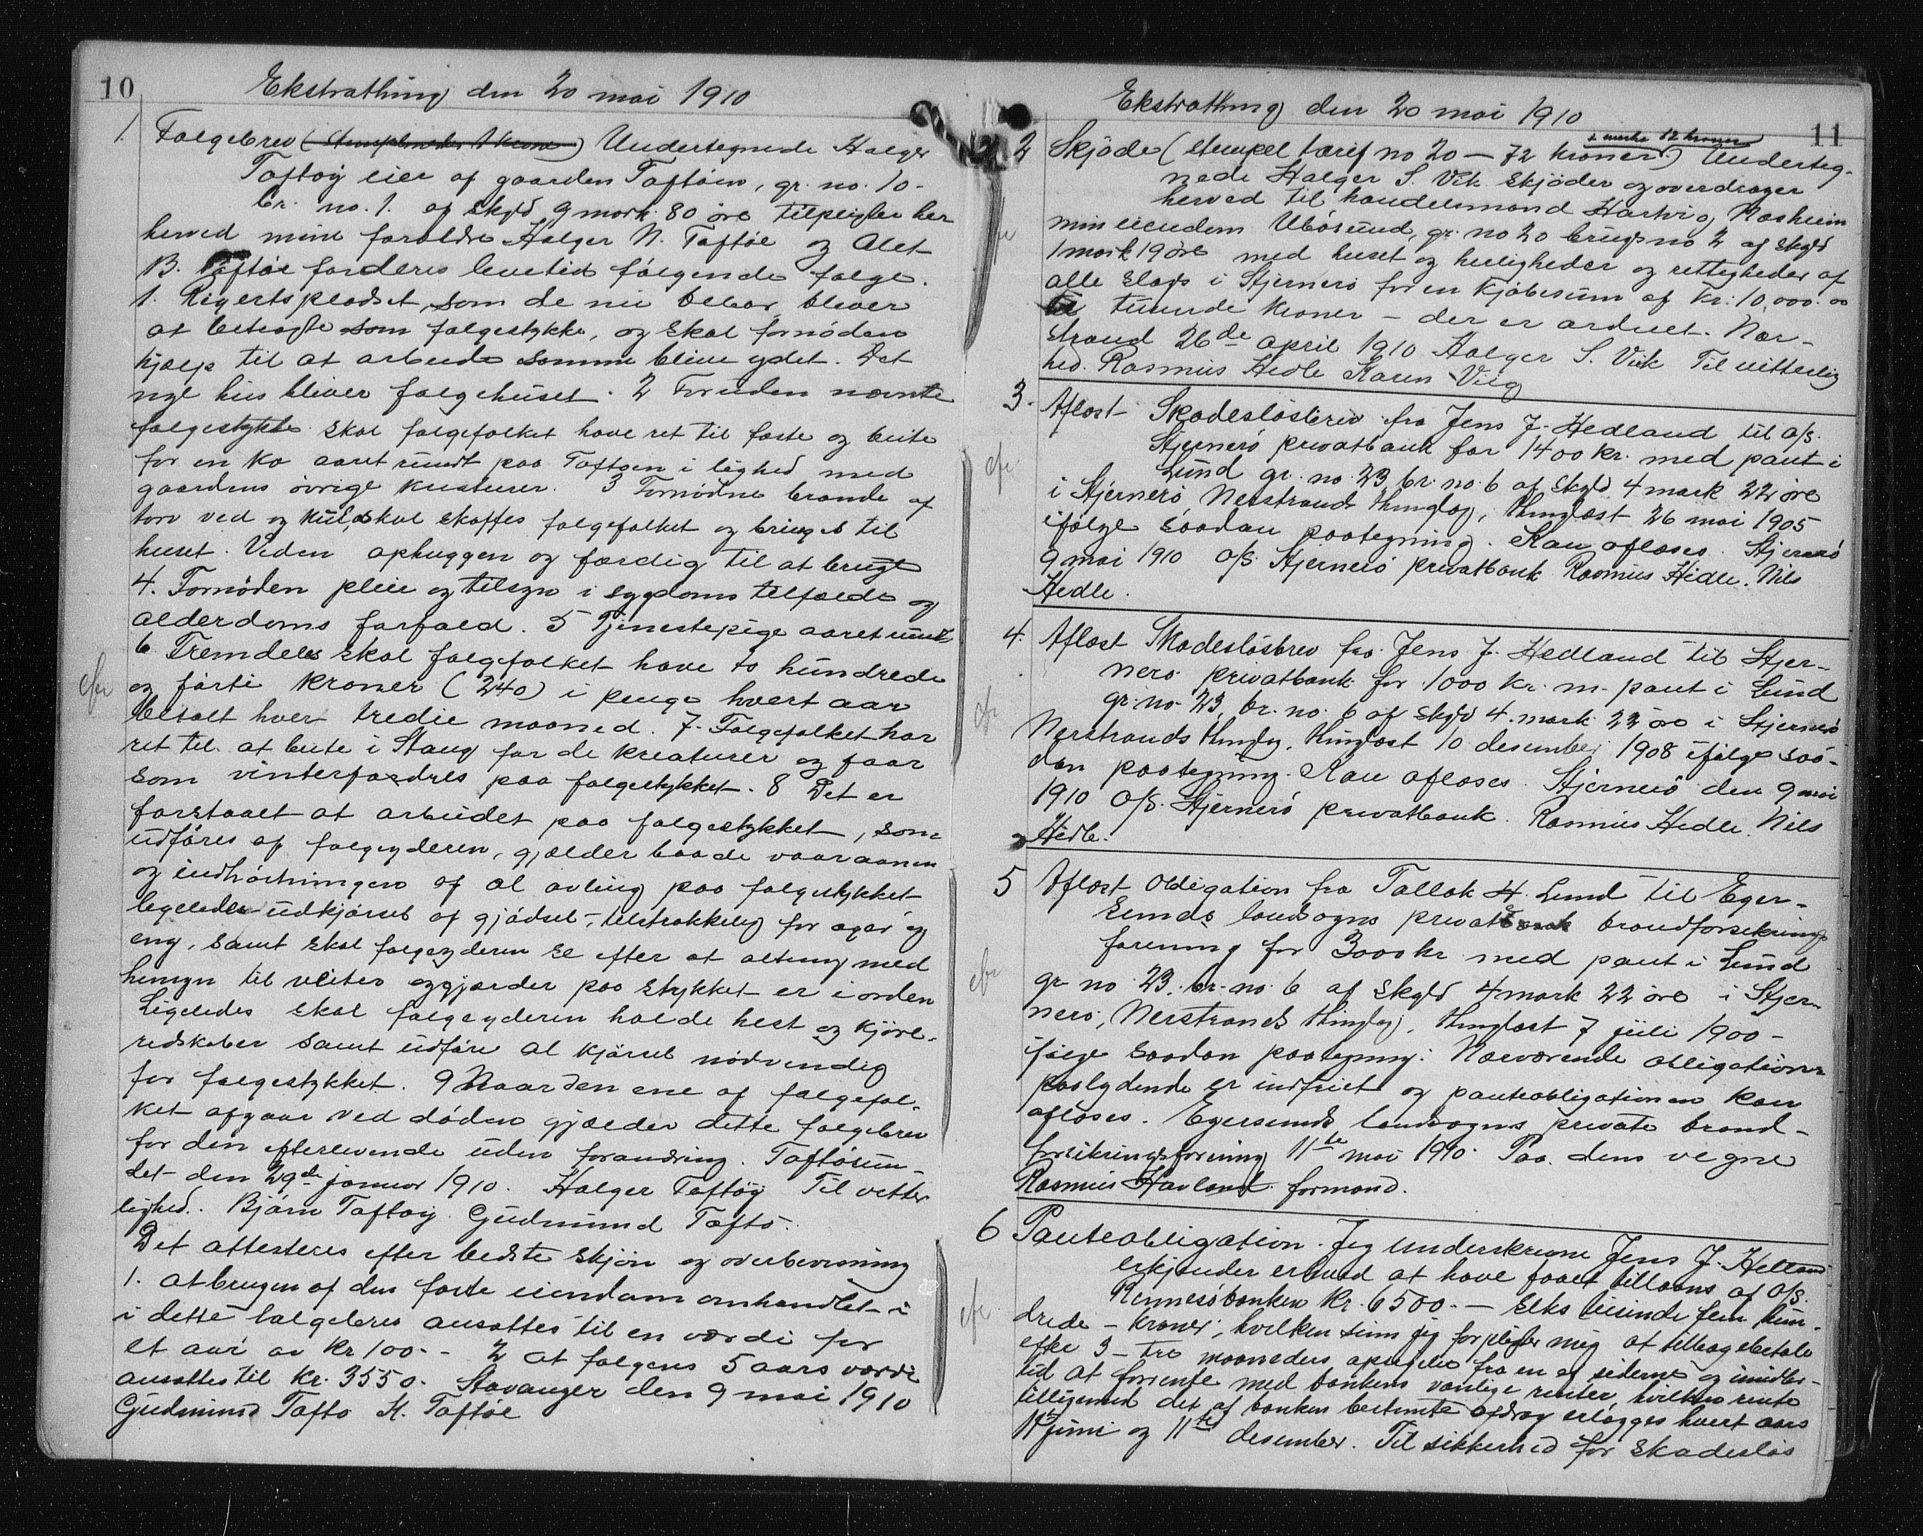 10
Ekstrathing den 20 mai 1910
1. Folgebrev (stemplmerke 1 krone) Undertegnede Holger
Toftøy eier af gaarden Toftøen, gr. no. 10-
br. no. 1. af skyld 9 mark 80 øre tilpligter her
herved mine foreldre Holger N. Toftøe og Alet
B. Toftøe forderes levetid følgende folge.
1. Rigertspladset, som de nu bebor, bliver
at betragte som folgestykke, og skal fornøden
hjælp til at arbeide samme blive ydet. Det
nye hus bliver folgehuset. 2 Foruden nævnte
folgestykke skal folgefolket have ret til foste og beite
for en ko aaret rundt paa Toftøen i lighed med
gaardens øvrige kreaturer. 3 Fornødne brænde af
torv ved og kul, skal skaffes folgefolket og bringes til
huset. Veden ophuggen og færdig til at bruge
4. Fornøden pleie og tilsyn i sygdoms tilfælde og
alderdoms forfald. 5 Tjenestepige aaret rundt
6 Fremdeles skal folgefolket have to hundrede
cfr og førti kroner (240) i penge hvert aar
betalt hver tredie maaned. 7. Folgefolket har
ret til at beite i Staug for de kreaturer og faar
som vinterfordres paa folgestykket. 8 Det er
forstaaet at arbeidet paa folgestykket, som
udføres af folgeyderen, gjælder baade vaaraanen
og indhøstningen af al avling paa folgestykket
ligeledes udkjørsel af gjødsel, tilstrækkelig for ager og
eng, samt skal folgeyderen se efter at alting med
hensyn til veiter og gjærder paa stykket er i orden
Ligeledes skal folgeyderen holde hest og kjøre-
redskaber samt udføre al kjørsel nødvendig
for folgestykket. 9 Naar den ene af folgefol-
ket afgaar ved døden gjælder dette folgebrev
for den efterlevende uden forandring. Toftøsun-
det den 29de januar 1910. Holger Toftøy Til vitter
lighed. Bjørn Toftøy Gudmund Toftø.
Det attesteres efter bedste skjøn og overbevisning
1. at brugen af den faste eiendom omhandlet i
i dette folgebrev ansættes til en værdi for
et aar av kr 100.- 2 at folgens 5 aars værdi
ansættes til kr. 3550. Stavanger den 9 mai 1910
Gudmund Toftø H. Toftøe
Ekstrathing den 20 mai 1910
11
2 Skjøde (stempel tarif no 20 - 72 kroner) Underteg-
nede Holger S. Vik skjøder og overdrager
herved til handelsmand Hartvig Rosheim
min eiendom Ubøsund, gr. no 20 brugs no 2 af skyld
1 mark 19 øre med huset og herligheder og rettigheder af
alle slags i Stjernerø for en kjøbesum af kr. 10,000.00
ti tusende kroner - der er ordnet. Nær-
strand 26de april 1910 Holger S. Vik Til vitterlig
hed. Rasmus Hedle Karen Viig
3. Aflæst Skadesløsbrev fra Jens J. Hedland til a/s.
Stjernerø privatbank for 1400 kr. med pant i
cfr Lund gr. no. 23, br. no. 6 af skyld 4 mark 22 øre
i Stjernerø Nerstrands thinglag, thinglæst 26 mai 1905
ifølge saadan paategning. Kan aflæses. Stjernerø
9 mai 1910 a/s. Stjernerø privatbank Rasmus Hedle. Nils
Hedle.
4. Aflæst Skadesløsbrev fra Jens J. Hedland til Stjer-
nerø privatbank for 1000 kr. m. pant i Lund
cfr gr. no. 23, br. no. 6 af skyld 4. mark 22 øre i Stjernerø
Nerstrands thinglag, thinglæst 10 desember 1908 ifølge saa-
dan paategning. Kan aflæses. Stjernerø den 9 mai
1910 a/s. Stjernerø privatbank. Rasmus Hedle. Nils
Hedle.
5 Aflæst Obligation fra Tallak H. Lund til Eger-
sunds landsogns privat brandforsikrings
forening for 3000 kr med pant i Lund
cfr gr no 23. br. no. 6 af skyld 4 mark 22 øre i Stjer-
nerø, Nerstrands thinglag, thinglæst 7 juli 1900 -
ifølge saadan paategning: Nærværende obligation
paalydende er indfriet og panteobligationen kan
aflæses. Egersunds landsogns private brand-
forsikringsforening 11te mai 1910. Paa dens vegne
Rasmus Havland. formand.
6 Panteobligation. Jeg underskrevne Jens J. Helland
erkjender erved at have faaet tillaans af a/s.
cfr Rennesøbanken kr. 6500.- seks tusinde fem hun-
drede - kroner, hvilken sum jeg forpligter mig at tilbagebetale
efter 3 - tre maaneders opsigelse fra en af siderne og imidler-
tid at forrente med bankens vanlige renter, hvilken rente
tilligemed det af banken bestemte afdrag erlægges hvert aars
11te juni og 11te desember. Til sikkerhed for skadesløs